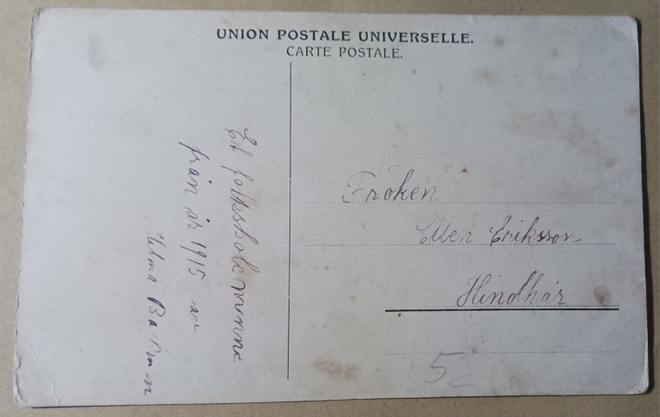 UNION POSTALE UNIVERSELLE.
CARTE POSTALE.
Et folksskole minne
från år 1915 av
Fröken
Ellen Eriksson
Hindhår
5